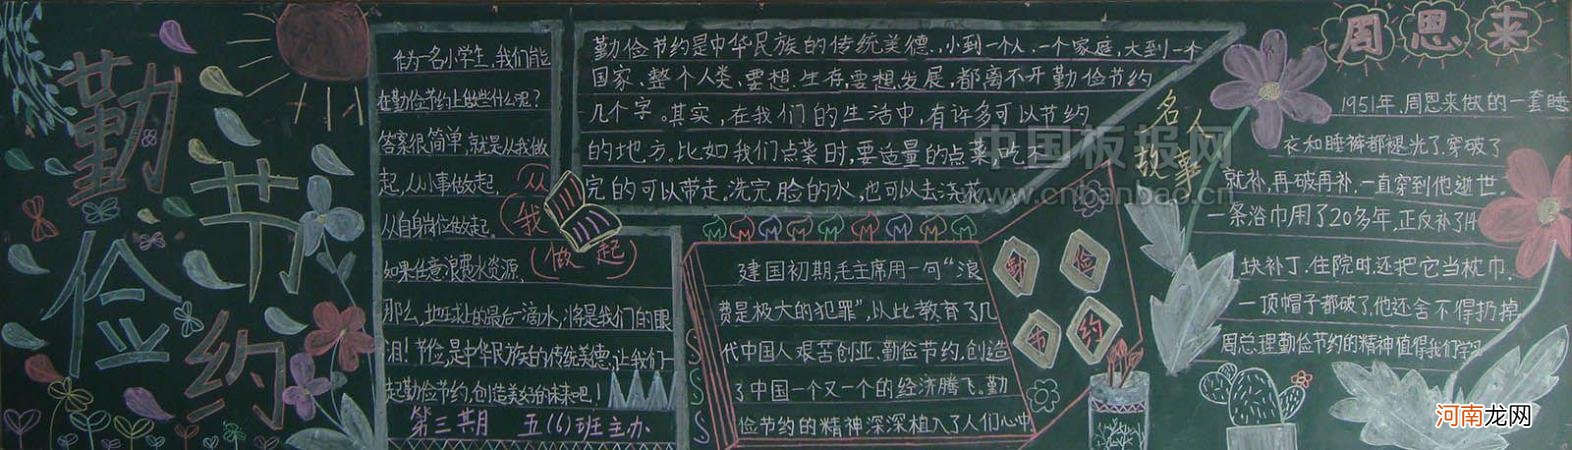 勤俭
节约
作为一名小学生,我们能
在勤俭节约上做些什么呢?
答案很简单,就是从我做
起,从小事做起,
从自身岗位做起。
如果任意浪费水资源,
那么,地球上的最后一滴水,将是我们的眼
泪!节俭,是中华民族的传统美德,让我们一
起勤俭节约,创造美好的未来吧!
第三期 五(6)班主办
从
我
做起
勤俭节约是中华民族的传统美德,小到一个人、一个家庭,大到一个
国家、整个人类,要想生存,要想发展,都离不开勤俭节约
几个字。其实,在我们的生活中,有许多可以节约
的地方。比如我们点菜时,要适量的点菜,吃不
完的可以带走。洗完脸的水,也可以去浇花。
建国初期,毛主席用一句“浪
费是极大的犯罪”,以此教育了几
代中国人艰苦创业、勤俭节约,创造
了中国一个又一个的经济腾飞。勤
俭节约的精神深深植入了人们心中
勤俭
节约
名人
故事
周恩来
1951年,周恩来做的一套睡
衣和睡裤都褪光了,穿破了
就补,再破再补,一直穿到他逝世。
一条浴巾用了20多年,正反补了14
块补丁.住院时,还把它当枕巾.
一顶帽子都破了,他还舍不得扔掉
周总理勤俭节约的精神值得我们学习
中国板报网
www.cnbanbao.cn
河南龙网